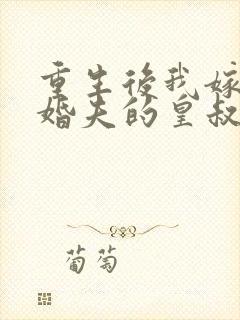 重生後我嫁
婚夫的皇叔
葡萄